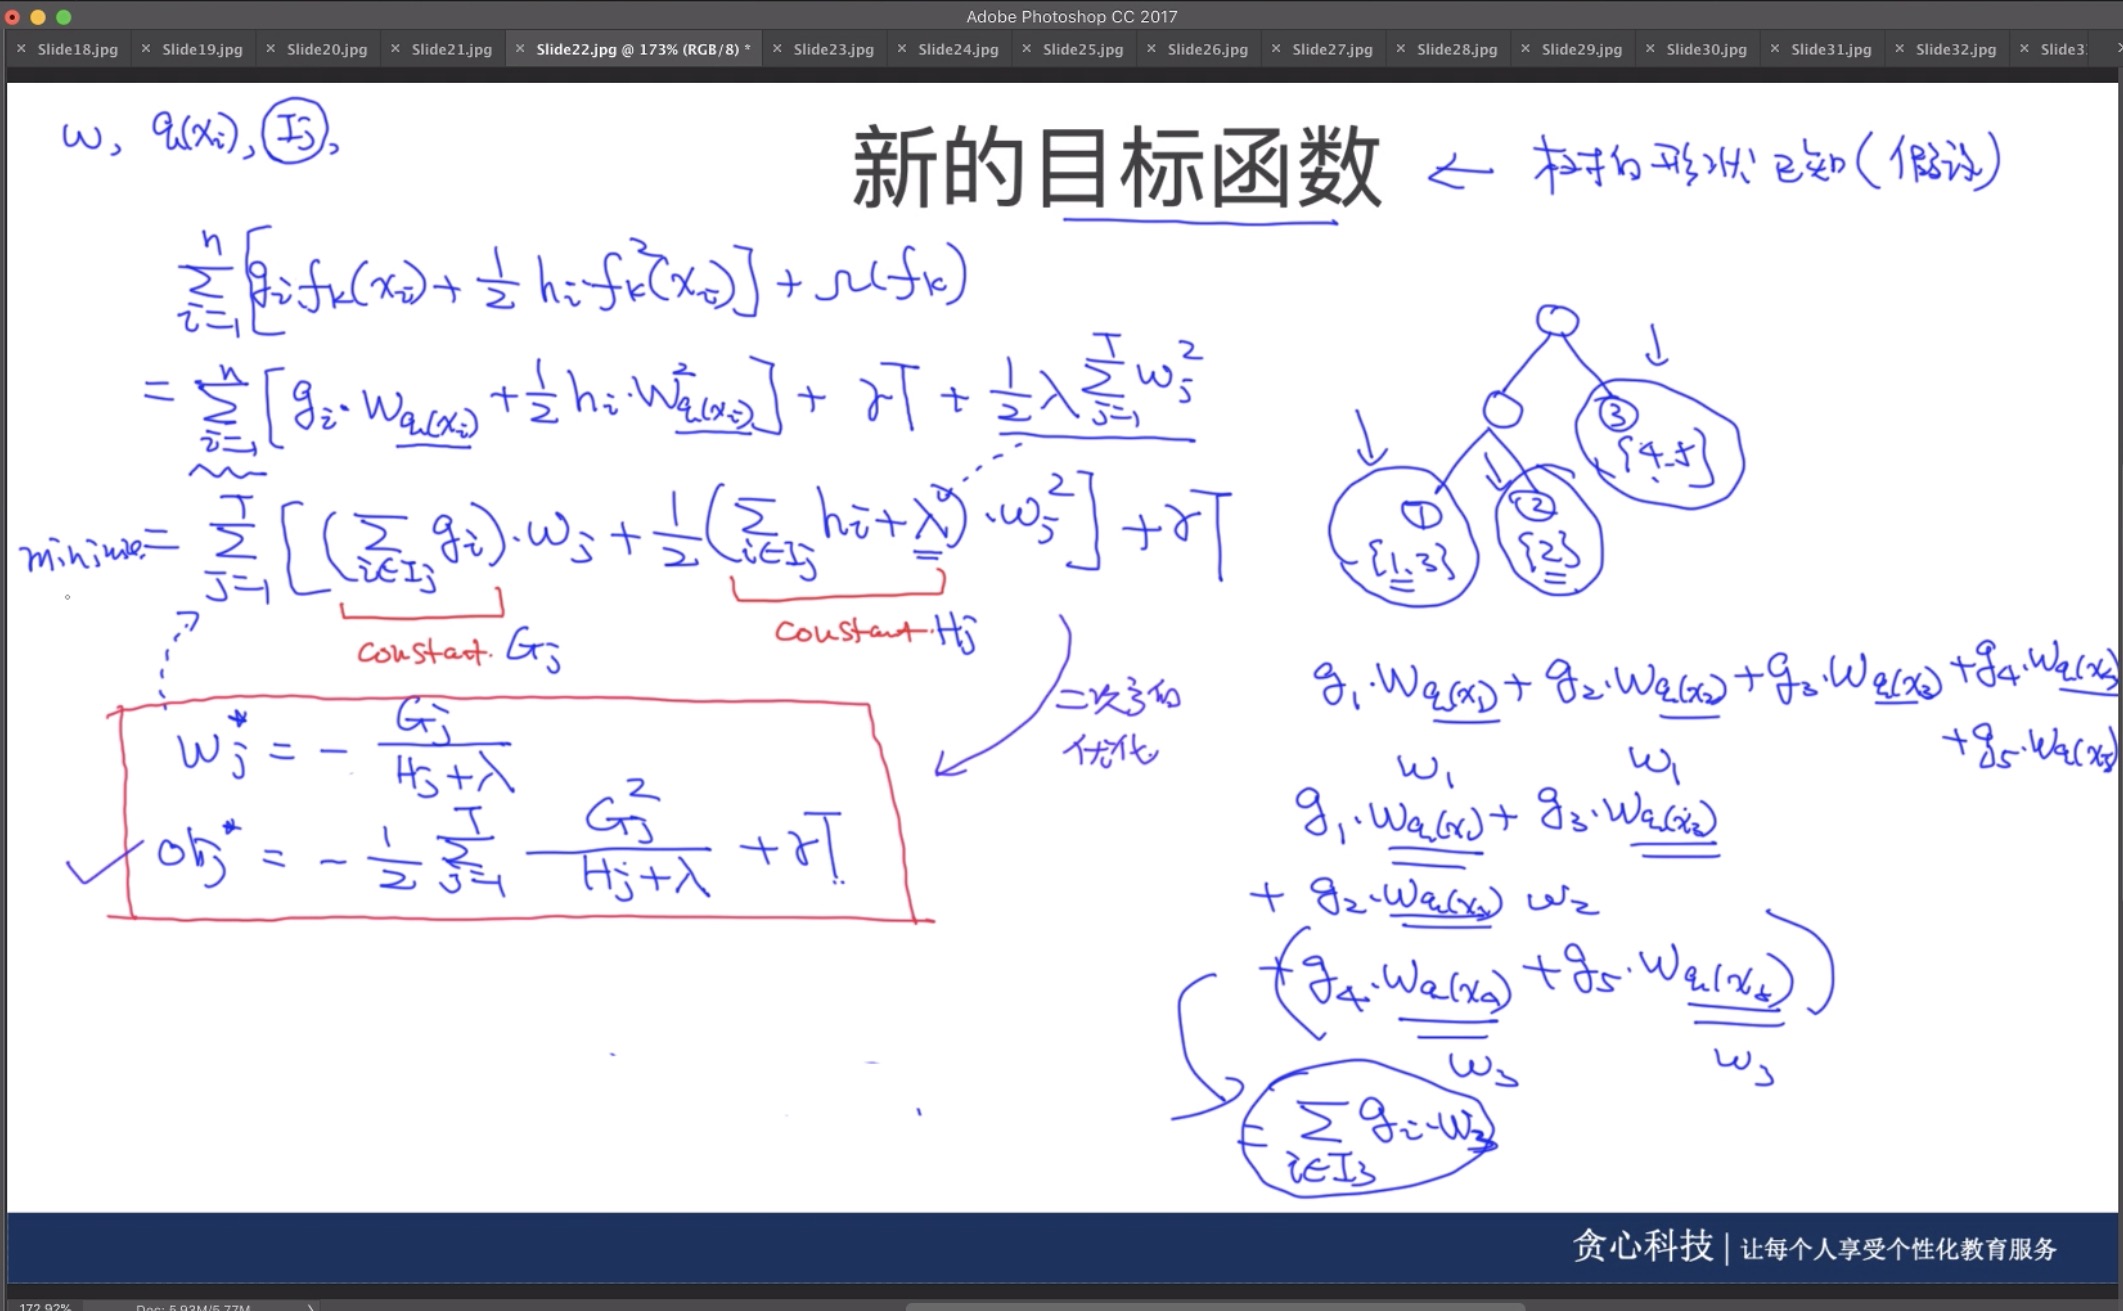 Adobe Photoshop CC 2017
Slide18.jpg Slide19.jpg Slide20.jpg Slide21.jpg Slide22.jpg @ 173% (RGB/8) * Slide23.jpg Slide24.jpg Slide25.jpg Slide26.jpg Slide27.jpg Slide28.jpg Slide29.jpg Slide30.jpg Slide31.jpg Slide32.jpg Slide3
w, q(x_i), I_j,
新的目标函数 ← 树的形状已知(假设)
∑_{i=1}^{n} [g_i f_k(x_i) + 1/2 h_i·f_k^2(x_i)] + Ω(f_k)
= ∑_{i=1}^{n} [g_i·w_{q(x_i)} + 1/2 h_i·w^2_{q(x_i)}] + γT + 1/2 λ ∑_{j=1}^{T} w_j^2
minimize = ∑_{j=1}^{T} [(∑_{i∈I_j} g_i)·w_j + 1/2 (∑_{i∈I_j} h_i + λ)·w_j^2] + γT
constant. G_j
constant. H_j
二次函
优化
w_j^* = - G_j / (H_j + λ)
✓ obj^* = - 1/2 ∑_{j=1}^{T} G_j^2 / (H_j + λ) + γT
③
{4.5}
①
{1.3}
②
{2}
g_1·w_{q(x_1)} + g_2·w_{q(x_2)} + g_3·w_{q(x_3)} + g_4·w_{q(x_4)}
+ g_5·w_{q(x_5)}
w_1 w_1
g_1·w_{q(x_1)} + g_3·w_{q(x_3)}
+ g_2·w_{q(x_2)} w_2
+ (g_4·w_{q(x_4)} + g_5·w_{q(x_5)})
w_3 w_3
= ∑_{i∈I_3} g_i·w_3
贪心科技 | 让每个人享受个性化教育服务
172.92% Doc: 5.93M/5.77M